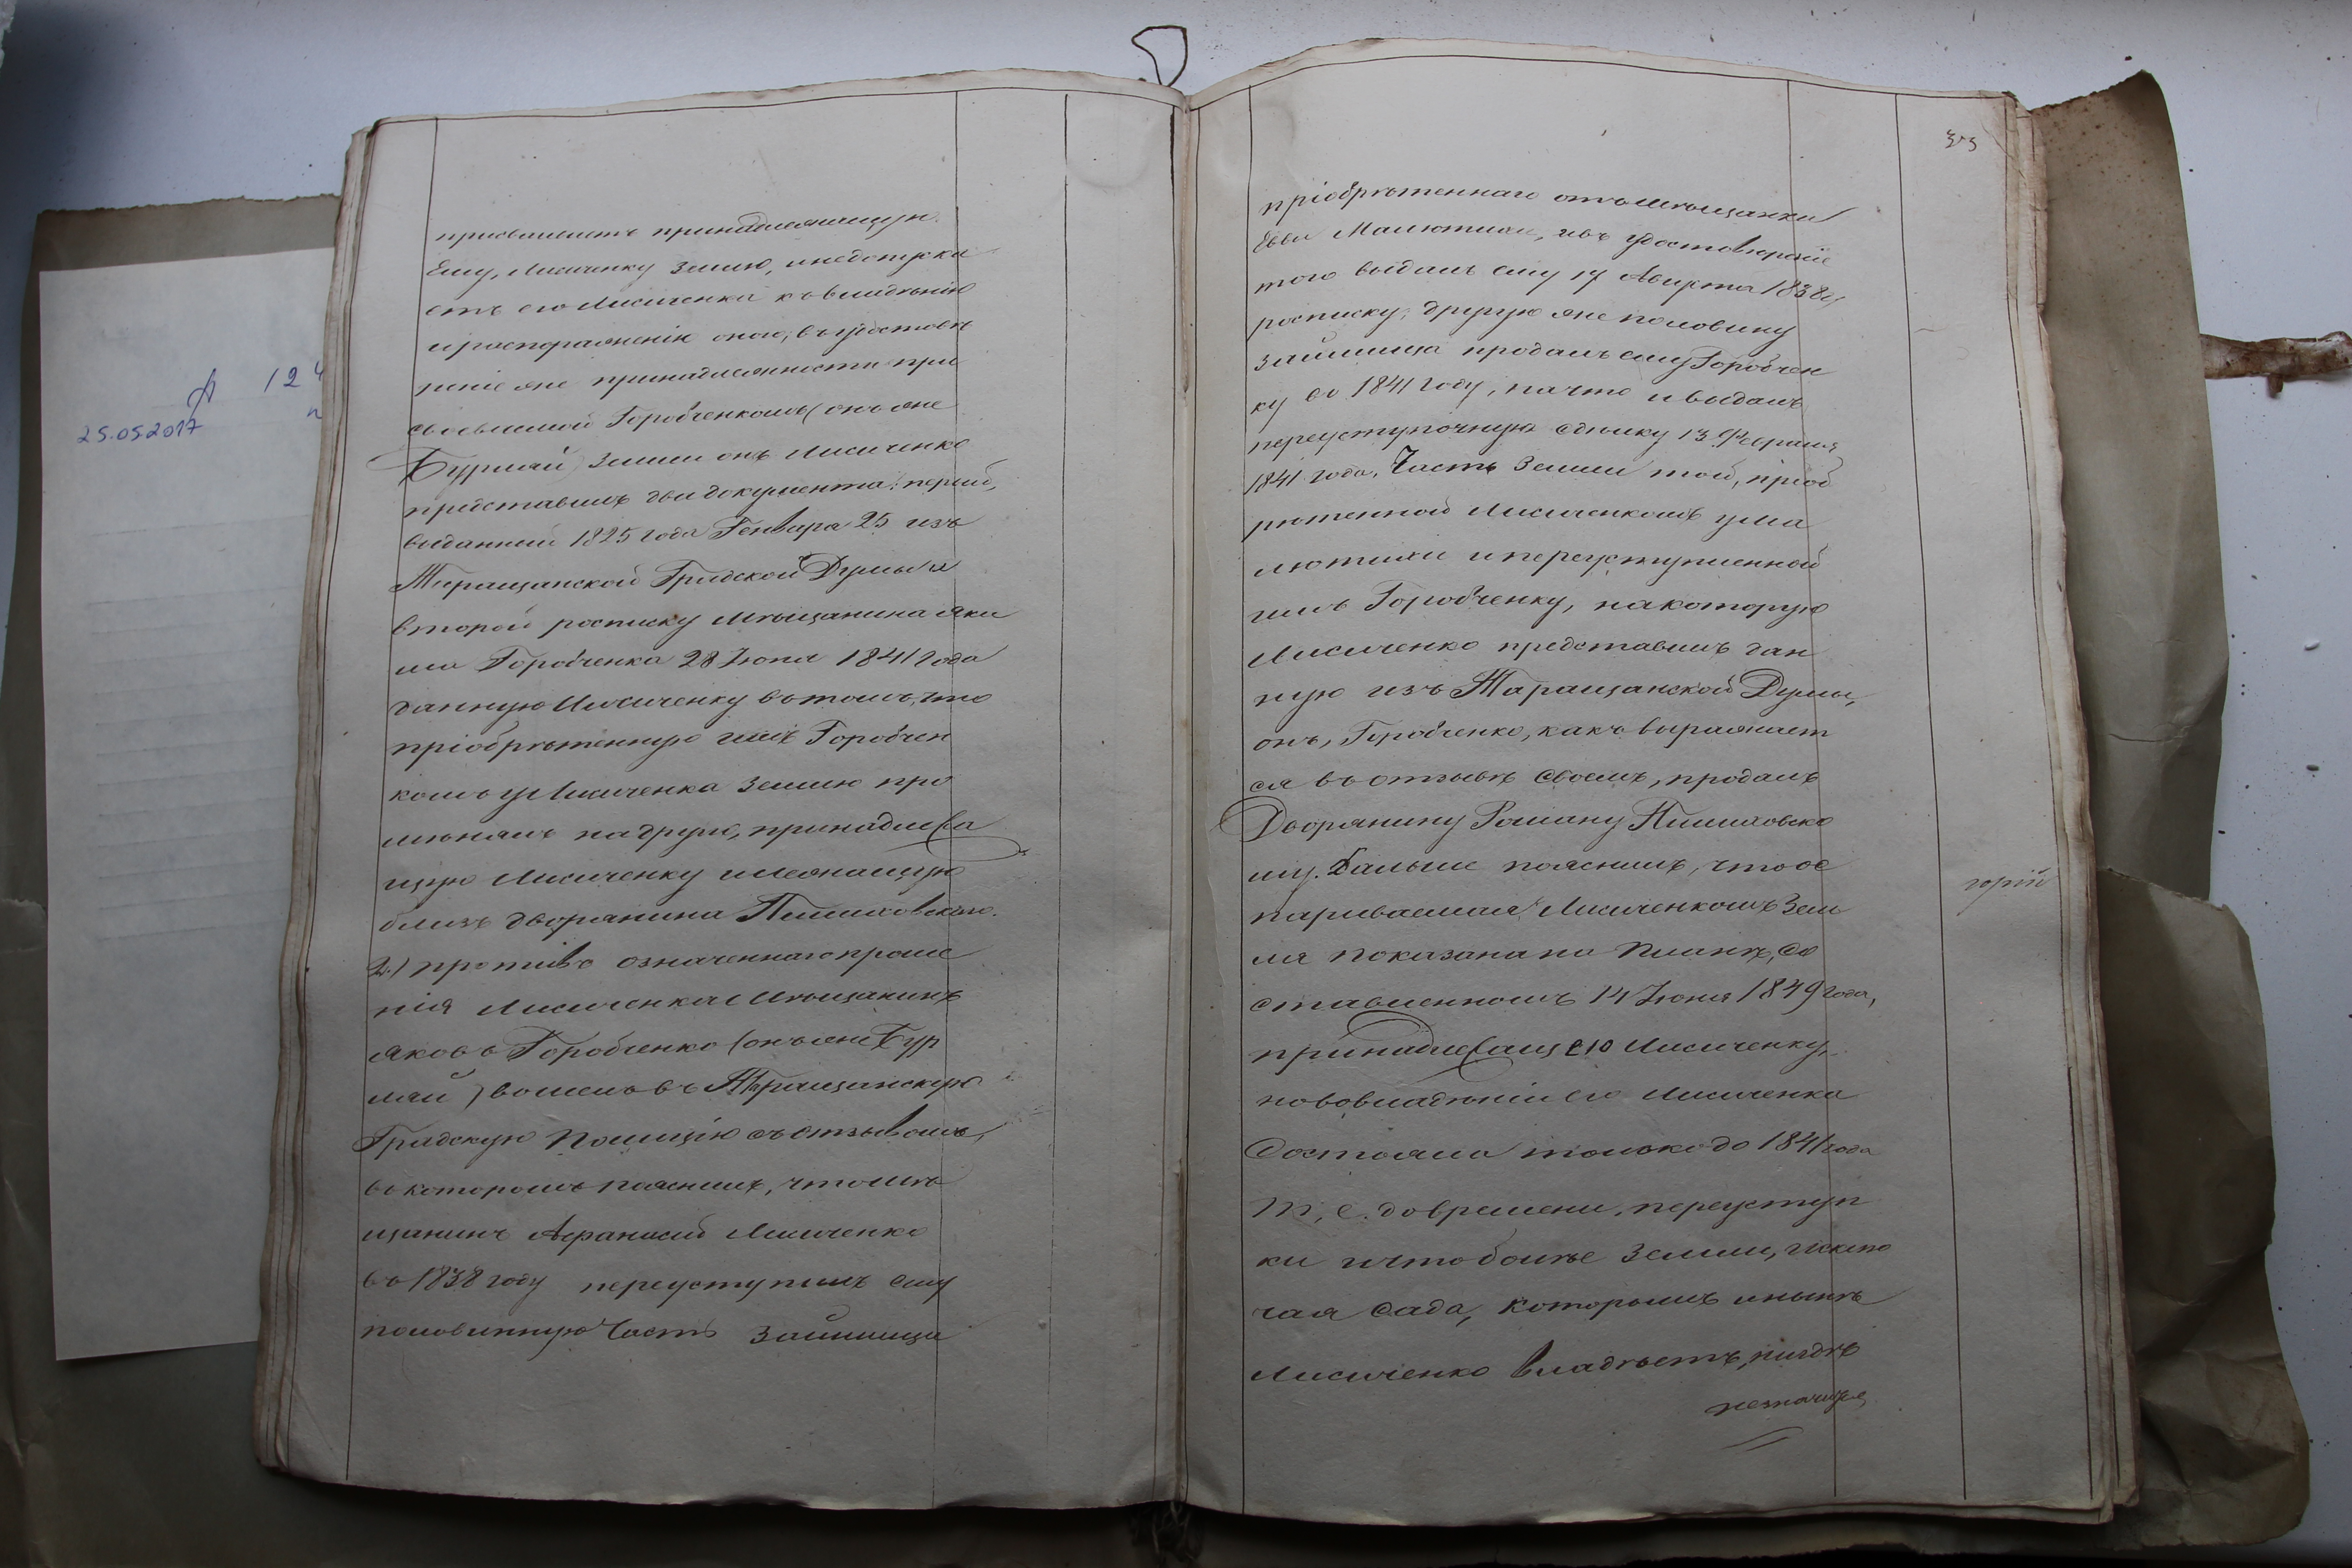 присвоиваетъ принадлежащую
Ему, Лисиченку землю, и недопуска
етъ его Лисиченка къ владѣнію
и распоряженію оною; въ удостовѣ
реніе же принадлежности при
своеваемой Горобченкомъ (онъ же
Бурлай) земли онъ Лисиченко
представилъ два документа: первый,
выданный 1825 года Генваря 25 изъ
Таращанской Градской Думы и
второй росписку мѣщанина Яки
ма Горобченка 28 Іюня 1841 года
данную Лисиченку въ томъ, что
пріобрѣтенную имъ Горобчен
комъ у Лисиченка землю про
мѣнялъ на другую, принадлежа
щую Лисиченку и лежащую
близь дворянина Пилиховскаго.
2.) противо означеннаго проше
нія Лисиченка мѣщанинъ
Яковъ Горобченко (онъ же Бур
лай) вошелъ въ Таращанскую
Градскую Полицію съ отзывомъ,
въ которомъ пояснилъ, что мѣ
щанинъ Афанасій Лисиченко
въ 1838 году переуступилъ ему
половинную часть займища
25.05.2017
124
пріобрѣтеннаго отъ мѣщанки
Евви Малютихи, и въ удостовѣреніе
того выдалъ ему 17 Августа 1838 г.
росписку, другую же половину
займища продалъ ему Горобчен
ку въ 1841 году, на что и выдалъ
переуступочную сдѣлку 13 Февраля
1841 года. Часть земли той, пріоб
рѣтенной Лисиченкомъ у Ма
лютихи и переуступленной
имъ Горобченку, на которую
Лисиченко представилъ дан
ную изъ Таращанской Думы,
онъ, Горобченко, какъ выражает
ся въ отзывѣ своемъ, продалъ
Дворянину Роману Пилиховско
му. Дальше пояснилъ, что ос
париваемая Лисиченкомъ зем
ля показана на планѣ, со
ставленномъ 14 Іюня 1849 года,
принадлежащею Лисиченку,
но во владѣніи его Лисиченка
состояла только до 1841 года
т. е. до времени, переуступ
ки и что болѣе земли, исклю
чая сада, которымъ и нынѣ
Лисиченко владѣетъ, нигдѣ